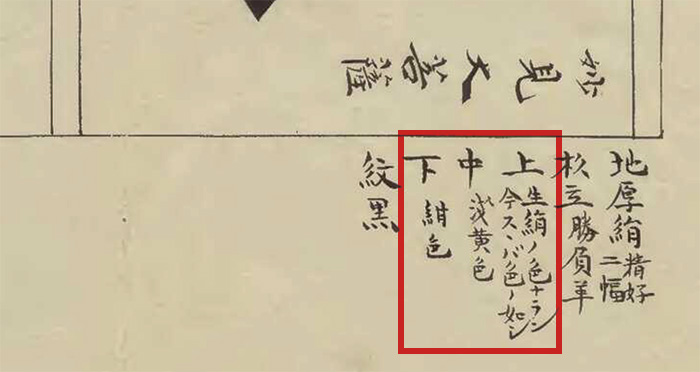 妙見大菩薩
地厚絹精好二幅
杦立勝負革
上 生絹ノ色ナラン
今スヽバ色ノ如シ
中 浅黄色
下 紺色
紋黒